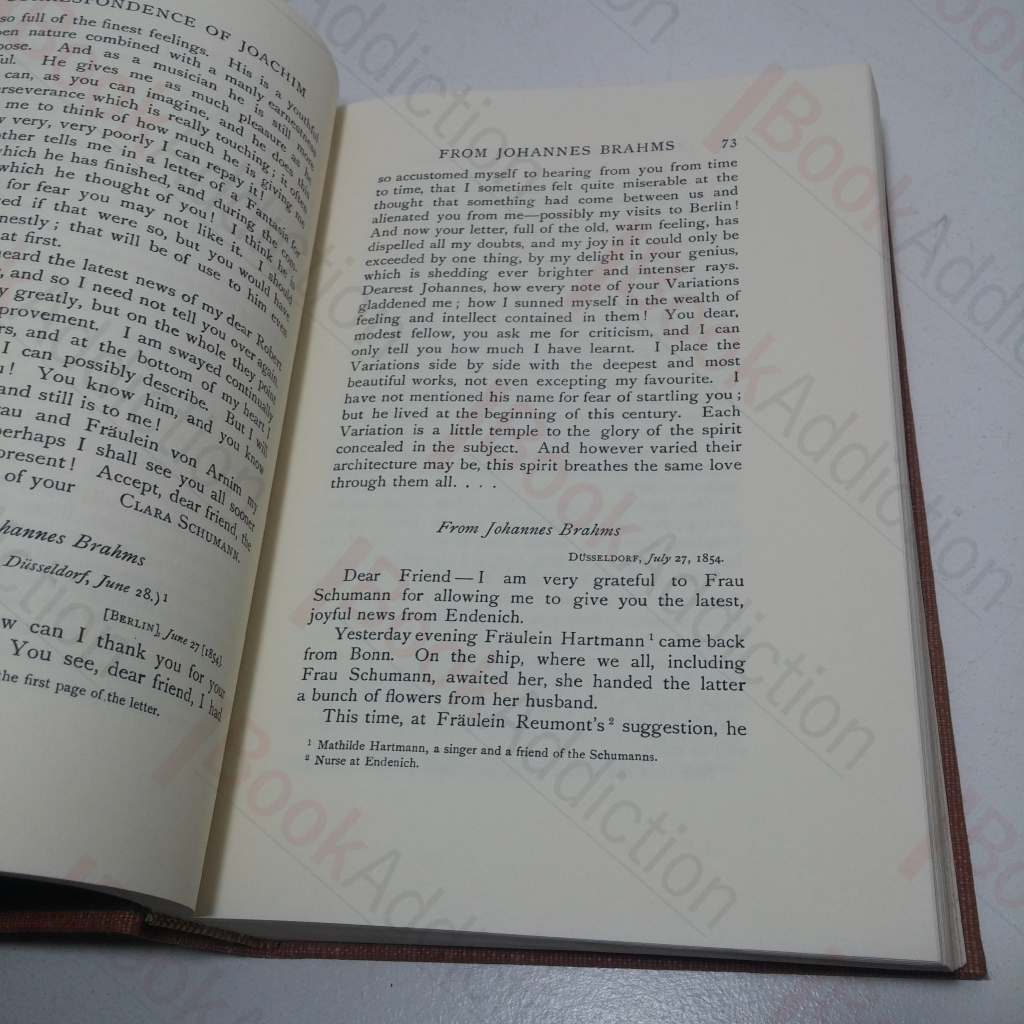 CORRESPONDENCE OF JOACHIM
so full of the finest feelings. His is a youthful
open nature combined with a manly earnestness
pose. And as a musician he is still more
ful. He gives me as much pleasure as he
can, as you can imagine, and he does this
perseverance which is really touching; it often
me to think of how much he is giving me
very, very poorly I can repay it!
other tells me in a letter of a Fantasia for
which he has finished, and during the com-
which he thought of you! I think he is
for fear you may not like it. I should
ed if that were so, but you would have
nestly; that will be of use to him even
at first.
heard the latest news of my dear Robert
, and so I need not tell you over again.
y greatly, but on the whole they point
provement. I am swayed continually
rs, and at the bottom of my heart I
I can possibly describe. But I will
u! You know him, and you know
and still is to me!
rau and Fräulein von Arnim my
perhaps I shall see you all sooner
present! Accept, dear friend, the
of your
CLARA SCHUMANN.
hannes Brahms
Düsseldorf, June 28.)¹
[BERLIN], June 27 [1854].
w can I thank you for your
You see, dear friend, I had
the first page of the letter.
FROM JOHANNES BRAHMS 73
so accustomed myself to hearing from you from time
to time, that I sometimes felt quite miserable at the
thought that something had come between us and
alienated you from me—possibly my visits to Berlin!
And now your letter, full of the old, warm feeling, has
dispelled all my doubts, and my joy in it could only be
exceeded by one thing, by my delight in your genius,
which is shedding ever brighter and intenser rays.
Dearest Johannes, how every note of your Variations
gladdened me; how I sunned myself in the wealth of
feeling and intellect contained in them! You dear,
modest fellow, you ask me for criticism, and I can
only tell you how much I have learnt. I place the
Variations side by side with the deepest and most
beautiful works, not even excepting my favourite. I
have not mentioned his name for fear of startling you;
but he lived at the beginning of this century. Each
Variation is a little temple to the glory of the spirit
concealed in the subject. And however varied their
architecture may be, this spirit breathes the same love
through them all. . . .
From Johannes Brahms
DÜSSELDORF, July 27, 1854.
Dear Friend—I am very grateful to Frau
Schumann for allowing me to give you the latest,
joyful news from Endenich.
Yesterday evening Fräulein Hartmann¹ came back
from Bonn. On the ship, where we all, including
Frau Schumann, awaited her, she handed the latter
a bunch of flowers from her husband.
This time, at Fräulein Reumont's² suggestion, he
¹ Mathilde Hartmann, a singer and a friend of the Schumanns.
² Nurse at Endenich.
BookAddiction